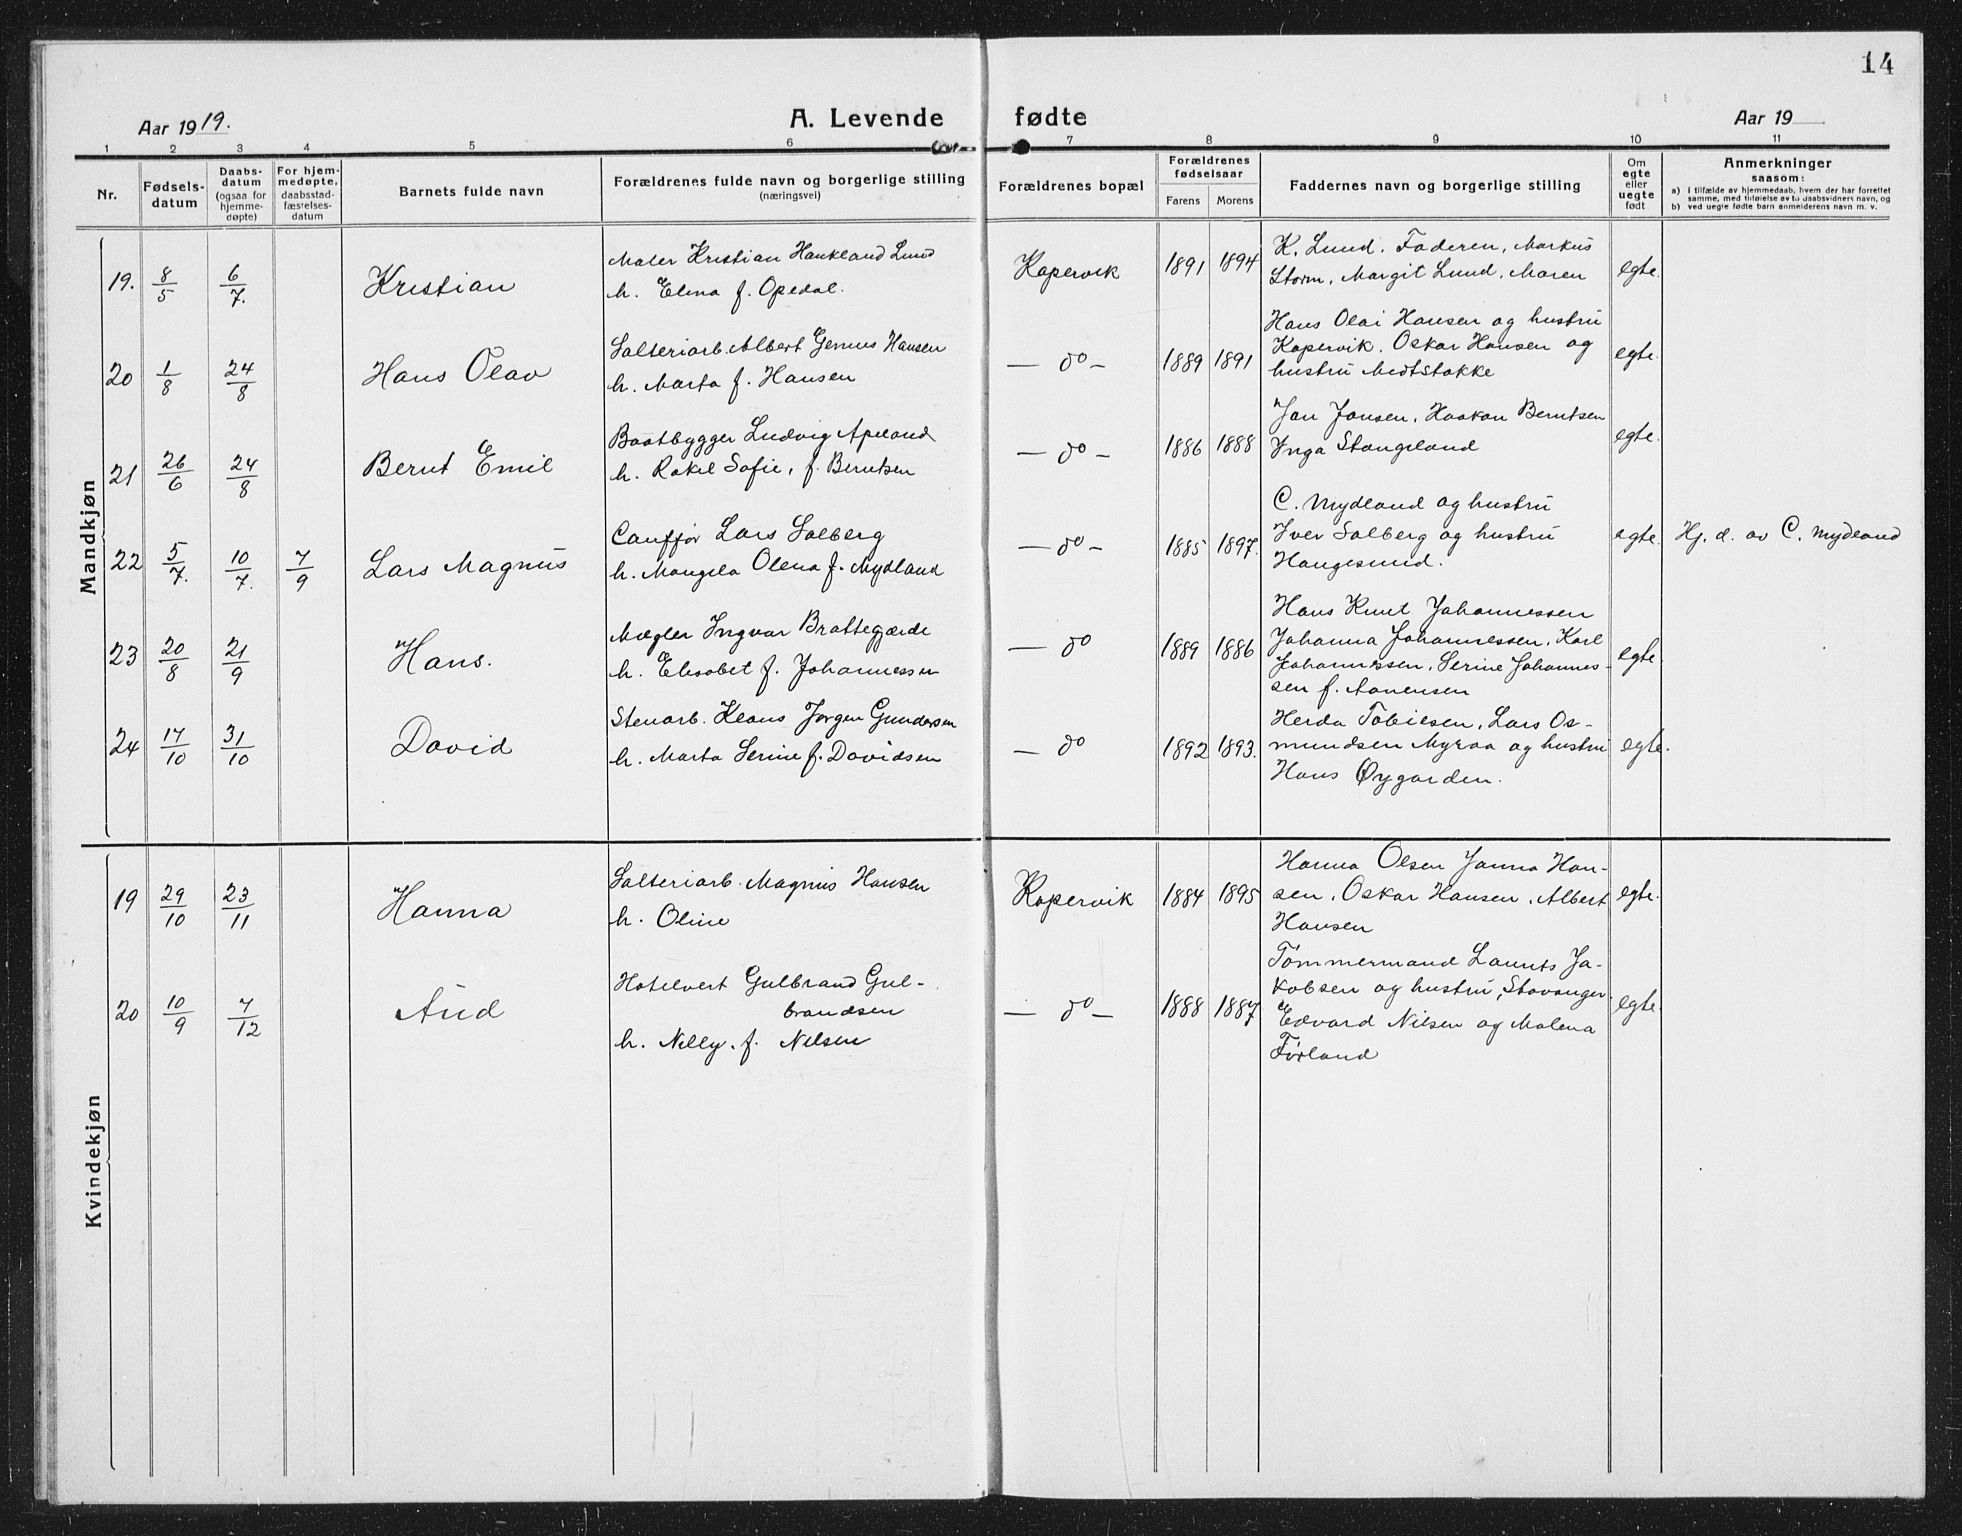 14
Aar 1919.
A. Levende fødte
Aar 19
1 2 3 4 5 6 7 8 9 10 11
Nr.
Fødsels-
datum
Daabs-
datum
(ogsaa for
hjemme-
døpte)
For hjem-
medøpte,
daabsstad-
fæstelses-
datum
Barnets fulde navn
Forældrenes fulde navn og borgerlige stilling
(næringsvei)
Forældrenes bopæl
Forældrenes
fødselsaar
Farens Morens
Faddernes navn og borgerlige stilling
Om
egte
eller
uegte
født
Anmerkninger
saasom:
a) i tilfælde av hjemmedaab, hvem der har forrettet
samme, med tilføielse av to daabsvidners navn, og
b) ved uegte fødte barn anmelderens navn m. v.
Mandkjøn
19. 8/5 6/7. Kristian
Maler Kristian Haukland Lund
h. Elina f. Opedal.
Kopervik 1891 1894
K. Lund. Faderen, Markus
Storm, Margit Lund, Maren
egte.
20 1/8 24/8 Hans Olav
Salteriarb. Albert Hansen
h. Marta f. Hansen
— do — 1889 1891
Hans Olai Hansen og hustru
Kopervik. Oskar Hansen og
hustru Medtstokke
egte.
21 26/6 24/8 Bernt Emil
Baatbygger Ludvig Apeland
h. Rakel Sofie, f. Berntsen
— do — 1886 1888
Jan Jansen, Haakon Berntsen
Inga Stangeland
egte.
22 5/7. 10/7. 7/9 Lars Magnus
Lars Solberg
h. Mangela Olena f. Mydland
— do — 1885 1897.
C. Mydland og hustru
Iver Solberg og hustru
Haugesund.
egte. Hj. d. av C. Mydland
23 20/8 21/9 Hans.
Mægler Ingvar Brattegjærde
h. Elisabet f. Johannessen
— do 1889 1886
Hans Knut Johannessen
Johanna Johannessen, Karl
Johannessen, Serine Johannes-
sen f. Aanensen
egte.
24 17/10 31/10 David
Stenarb. Klaus Jørgen Gundersen
h. Marta Serine f. Davidsen
— do 1892 1893.
Herda Tobiesen, Lars Os-
mundsen Myraa og hustru
Hans Øygarden.
egte.
Kvindekjøn
19 29/10 23/11 Hanna
Salteriarb. Magnus Hansen
h. Oline
Kopervik 1884 1895
Hanna Olsen Janna Han-
sen, Oskar Hansen, Albert
Hansen
egte.
20 10/9 7/12 Aud
Hotelvert Gulbrand Gul-
brandsen
h. Nelly. f. Nilsen
— do — 1888 1887
Tømmermand Laurits Ja-
kobsen og hustru, Stavanger.
Edvard Nilsen og Malena
Førland
egte.